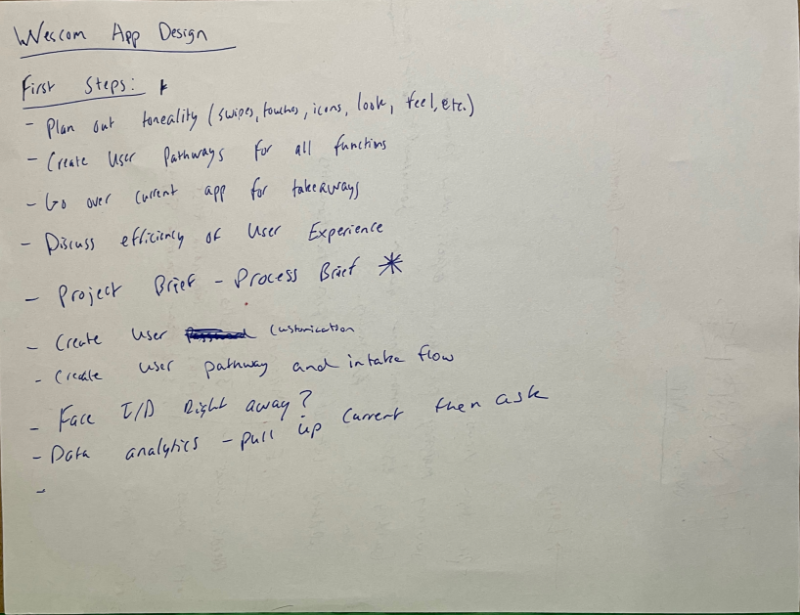 Wescom App Design
First Steps:
- Plan out toneality (swipes, touches, icons, look, feel, etc.)
- Create User Pathways for all functions
- Go over current app for takeaways
- Discuss efficiency of User Experience
- Project Brief - Process Brief *
- Create User Customication
- Create user pathway and intake flow
- Face I/D Right away?
- Data analytics - pull up current then ask
-